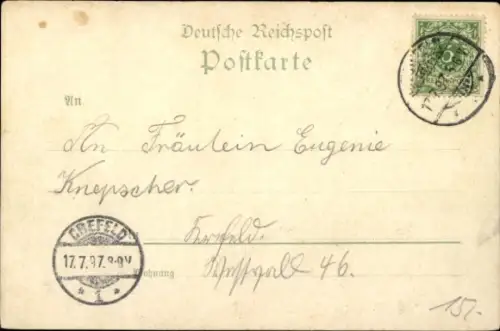 Deutsche Reichspost
Postkarte
An
An Fräulein Eugenie
Knepscher.
Krefeld.
Wohnung
Westwall 46.
CREFELD
17.7.97. 8-9V.
* 1 *
5
15,-